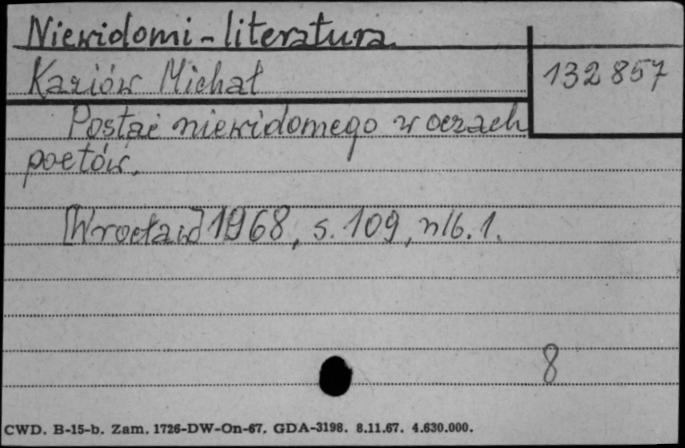 Niewidomi - literatura.
Kaziów Michał
132 857
Postać niewidomego w oczach
poetów.
[Wrocław] 1968, s. 109, nlb. 1.
8
CWD. B-15-b. Zam. 1726-DW-On-67. GDA-3198. 8.11.67. 4.630.000.